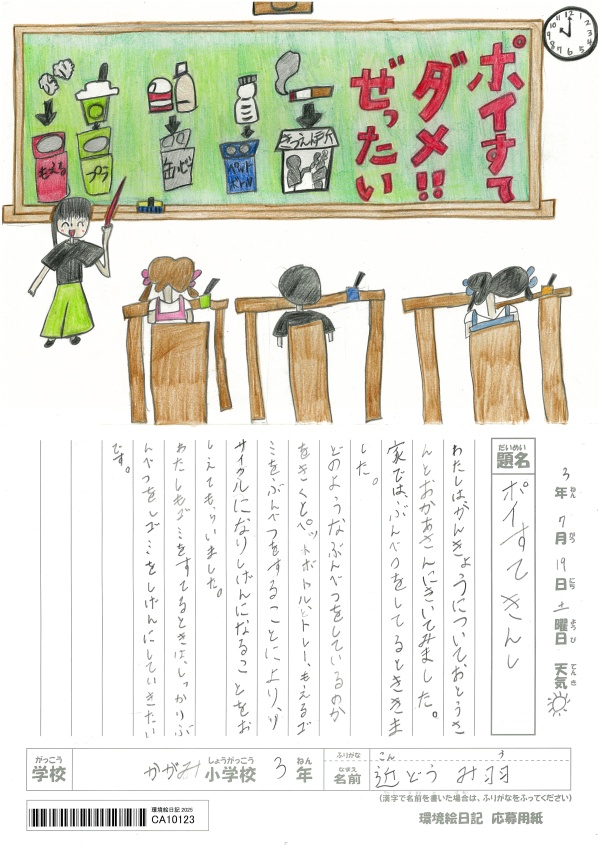 ポイすて
ダメ!!
ぜったい
もえる
プラ
缶・ビン
ペット
ボトル
きつえん所
12
1
2
3
4
5
6
7
8
9
10
11
3年 7月 19日 土曜日 天気
ねん がつ にち ようび てんき
だいめい
題名
ポイすてきんし
わたしはがんきょうについておとうさ
んとおかあさんにきいてみました。
家では、ぶんべつをしてるとききま
した。
どのようなぶんべつをしているのか
をきくとペットボトル、とトレー、もえるゴ
ミをぶんべつをすることにより、リ
サイクルになりしげんになることをお
しえてもらいました。
わたしもゴミをすてるときは、しっかりぶ
んべつをしゴミをしげんにしていきたい
です。
がっこう
学校
かがみ
しょうがっこう
小学校
3
ねん
年
ふりがな
こん う
なまえ
名前
近どう み羽
(漢字で名前を書いた場合は、ふりがなをふってください)
環境絵日記 2025
CA10123
環境絵日記 応募用紙